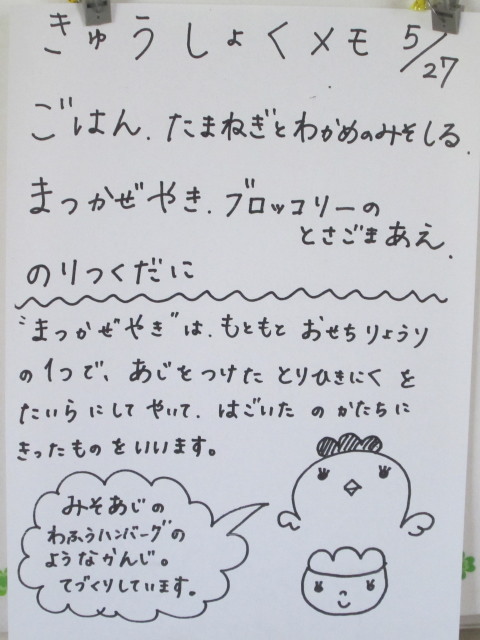 きゅうしょくメモ 5/27
ごはん.たまねぎとわかめのみそしる.
まつかぜやき.ブロッコリーの
とさごまあえ.
のりつくだに
"まつかぜやき"は.もともと おせちりょうり
の1つで、あじをつけた とりひきにくを
たいらにしてやいて.はごいたのかたちに
きったものをいいます。
みそあじの
わふうハンバーグの
ようなかんじ。
てづくりしています。